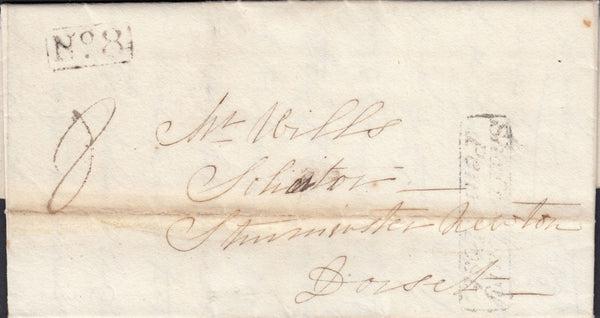 No. 8
8
Mr. Wills
Solicitor
Sturminster Newton
Dorset